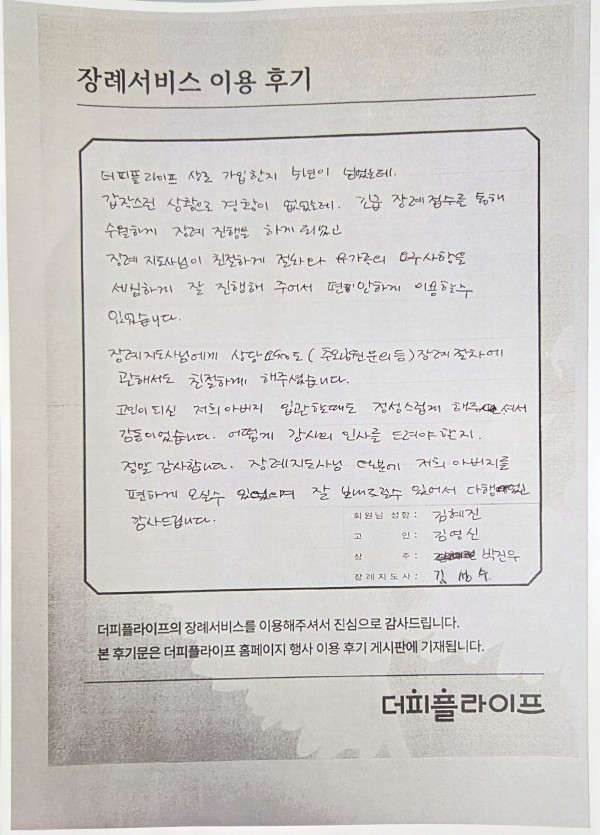 장례서비스 이용 후기
더피플라이프 상조 가입한지 수년이 넘었는데.
갑작스런 상황으로 경황이 없었는데. 긴급 장례접수를 통해
수월하게 장례 진행을 하게 되었고
장례 지도사님이 친절하게 절차와 유가족의 요구사항을
세심하게 잘 진행해 주어서 편안하게 이용할수
있었습니다.
장례지도사님에게 상담 요청도 ( 추모공원문의등) 장례절차에
관해서도 친절하게 해주셨습니다.
고인이 되신 저희아버지 입관할때도 정성스럽게 해주셔서
감동이었습니다. 어떻게 감사의 인사를 드려야 할지.
정말 감사합니다. 장례지도사님 덕분에 저희 아버지를
편하게 모실수 있었으며 잘 보내드릴수 있어서 다행
감사드립니다.
회원님 성함 : 김혜진
고 인 : 김영신
상 주 : 박건우
장례지도사 : 김 성 수
더피플라이프의 장례서비스를 이용해주셔서 진심으로 감사드립니다.
본 후기문은 더피플라이프 홈페이지 행사 이용 후기 게시판에 기재됩니다.
더피플라이프